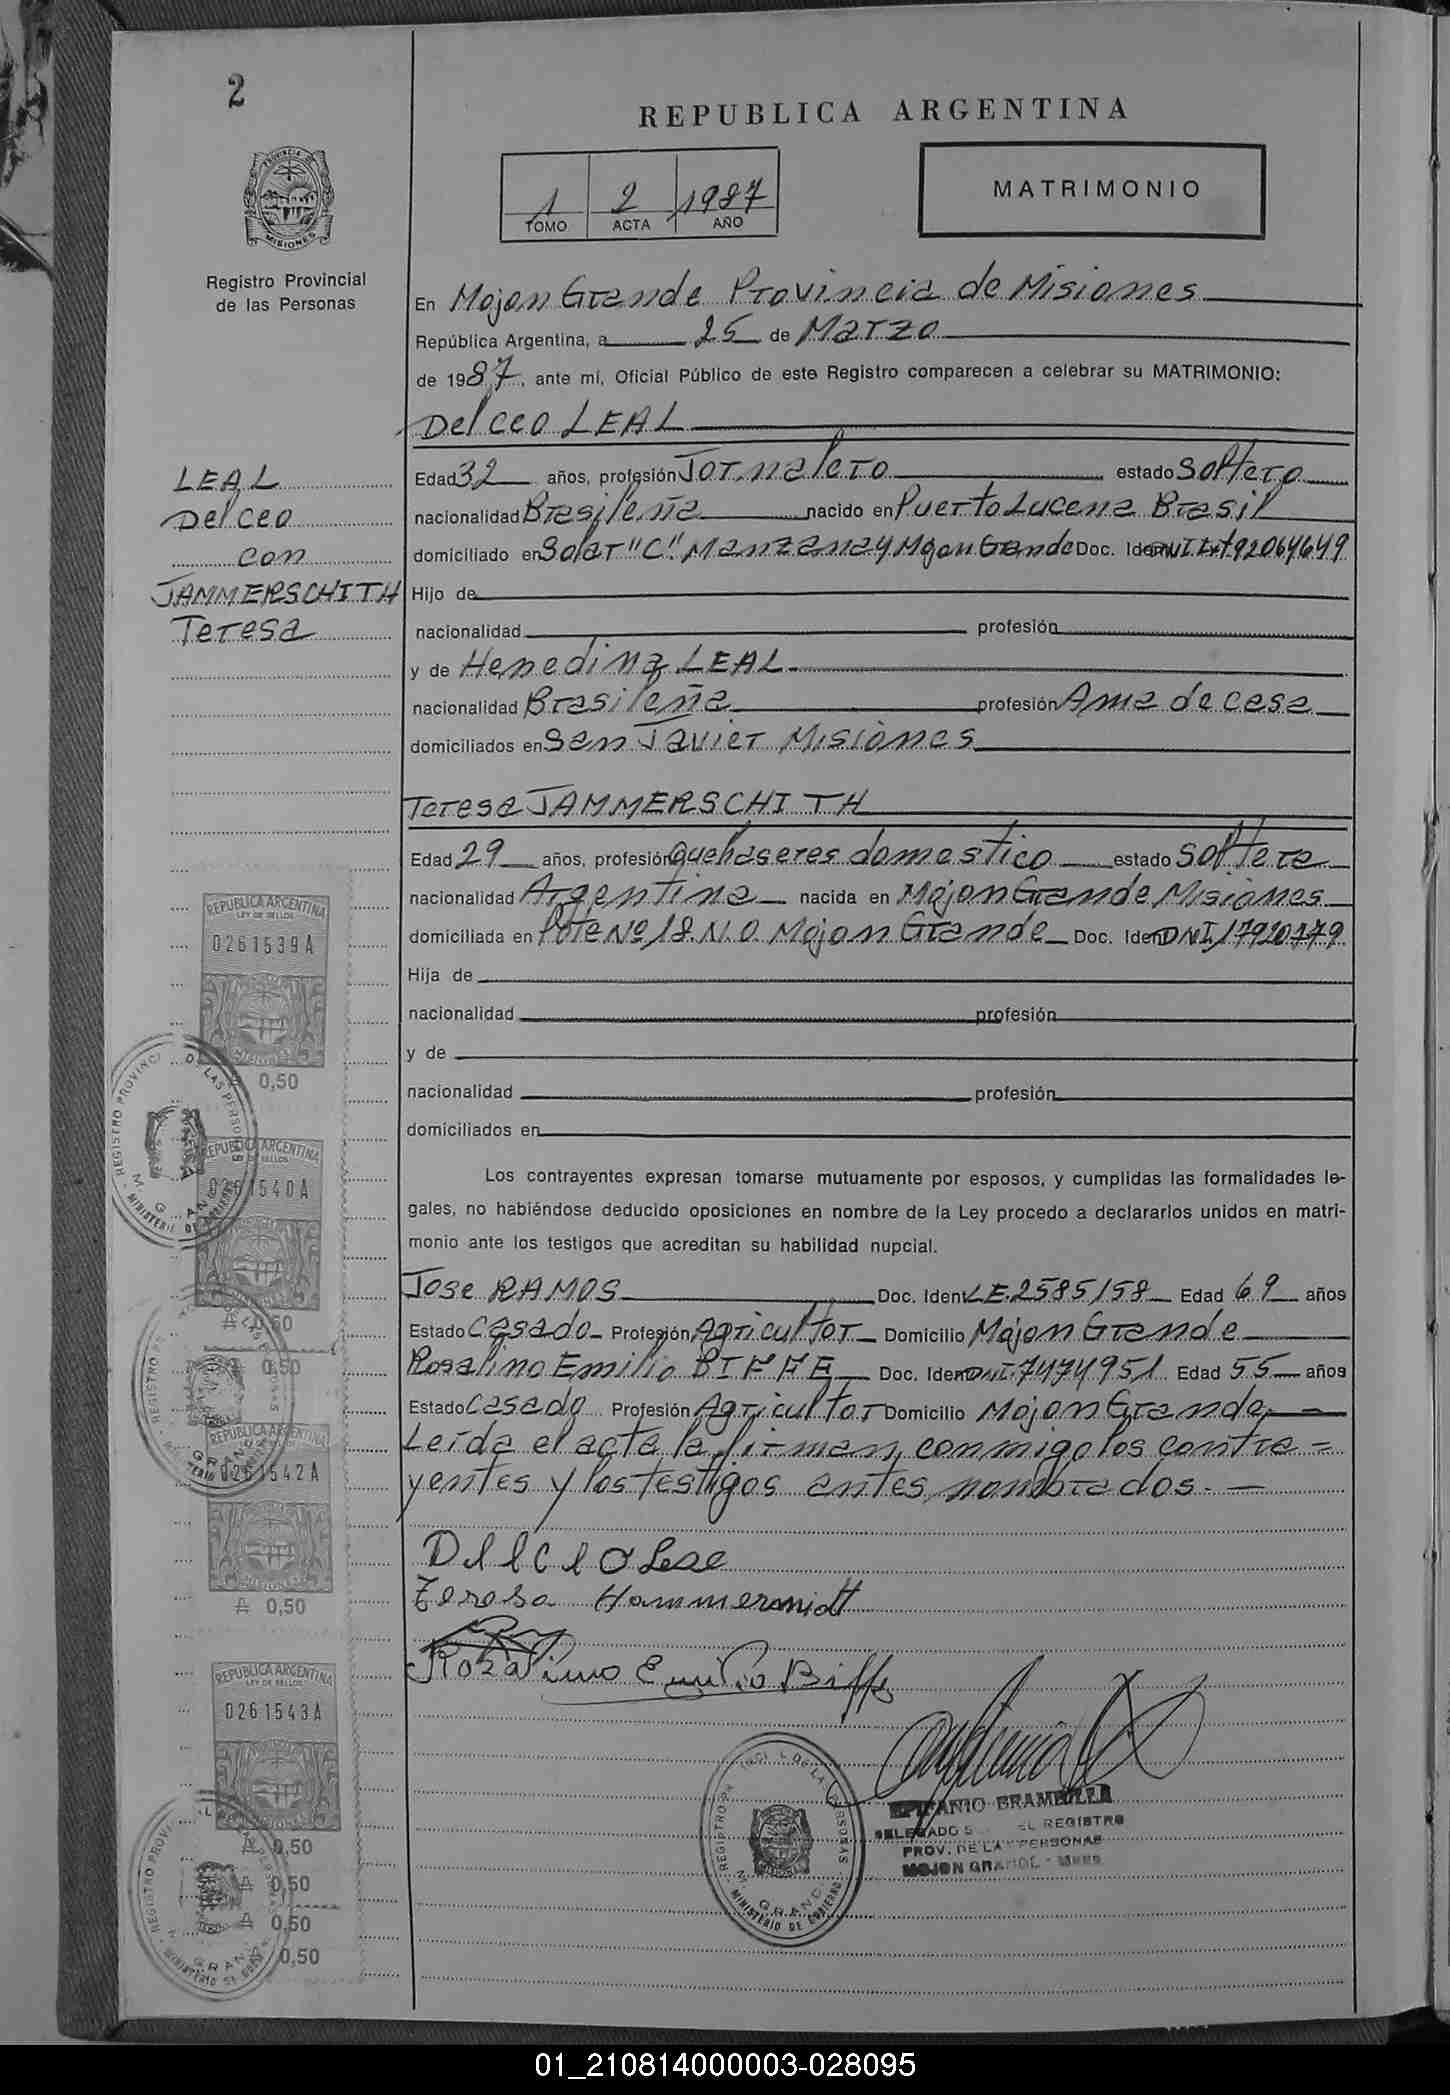 2
REPUBLICA ARGENTINA
1 2 1987
TOMO ACTA AÑO
MATRIMONIO
PROVINCIA DE
MISIONES
Registro Provincial
de las Personas
En Mojon Grande Provincia de Misiones
República Argentina, a 25 de Marzo
de 1987, ante mí, Oficial Público de este Registro comparecen a celebrar su MATRIMONIO:
Delceo LEAL
LEAL
Delceo
con
JAMMERSCHITH
Teresa
Edad 32 años, profesión Jornalero estado Soltero
nacionalidad Brasileña nacido en Puerto Lucena Brasil
domiciliado en Solar "C" Manzana y Mojon Grande Doc. Ident 92064649
Hijo de
nacionalidad profesión
y de Henedina LEAL
nacionalidad Brasileña profesión Ama de casa
domiciliados en San Javier Misiones
Teresa JAMMERSCHITH
Edad 29 años, profesión quehaseres domestico estado Soltera
nacionalidad Argentina nacida en Mojon Grande Misiones
domiciliada en Lote Nº 18 N.O Mojon Grande Doc. Ident DNI
Hija de
nacionalidad profesión
y de
nacionalidad profesión
domiciliados en
Los contrayentes expresan tomarse mutuamente por esposos, y cumplidas las formalidades le-
gales, no habiéndose deducido oposiciones en nombre de la Ley procedo a declararlos unidos en matri-
monio ante los testigos que acreditan su habilidad nupcial.
Jose RAMOS Doc. Ident L.E. 2585158 Edad 69 años
Estado Casado Profesión Agricultor Domicilio Mojon Grande
Rosalino Emilio BIFFE Doc. Ident DNI 7474951 Edad 55 años
Estado Casado Profesión Agricultor Domicilio Mojon Grande
Leída el acta la firman conmigo los contra=
yentes y los testigos antes nombrados.
Delceo Leal
Teresa Hammermidt
Rozalino Emilio Biffe
EPIFANIO BRAMBILLA
DELEGADO EL REGISTRO
PROV. DE LAS PERSONAS
MOJON GRANDE - Mnes
REGISTRO PROVINCIAL DE LAS PERSONAS
M. GRANDE
MINISTERIO DE GOBIERNO
REPUBLICA ARGENTINA
LEY DE SELLOS
0261539A
MISIONES
0,50
REPUBLICA ARGENTINA
0261540A
0,50
0,50
REPUBLICA ARGENTINA
0261542A
MISIONES
0,50
REPUBLICA ARGENTINA
LEY DE SELLOS
0261543A
0,50
0,50
0,50
0,50
01_210814000003-028095